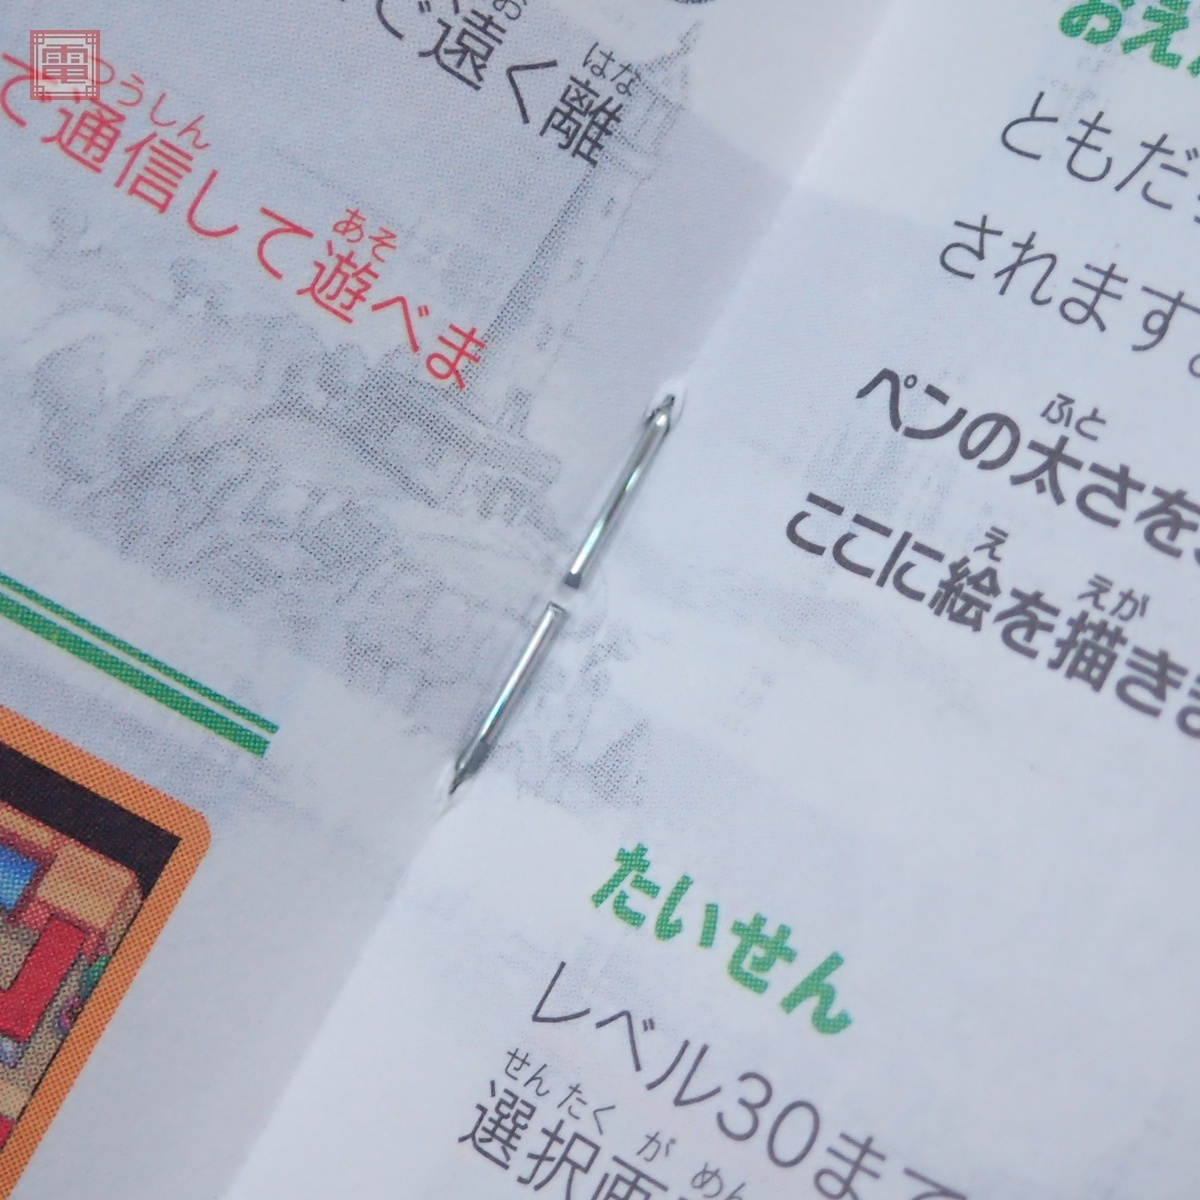 電
で遠く離
で通信して遊べま
おえ
ともだ
されます
ペンの太さを
ここに絵を描き
たいせん
レベル30まで
選択画